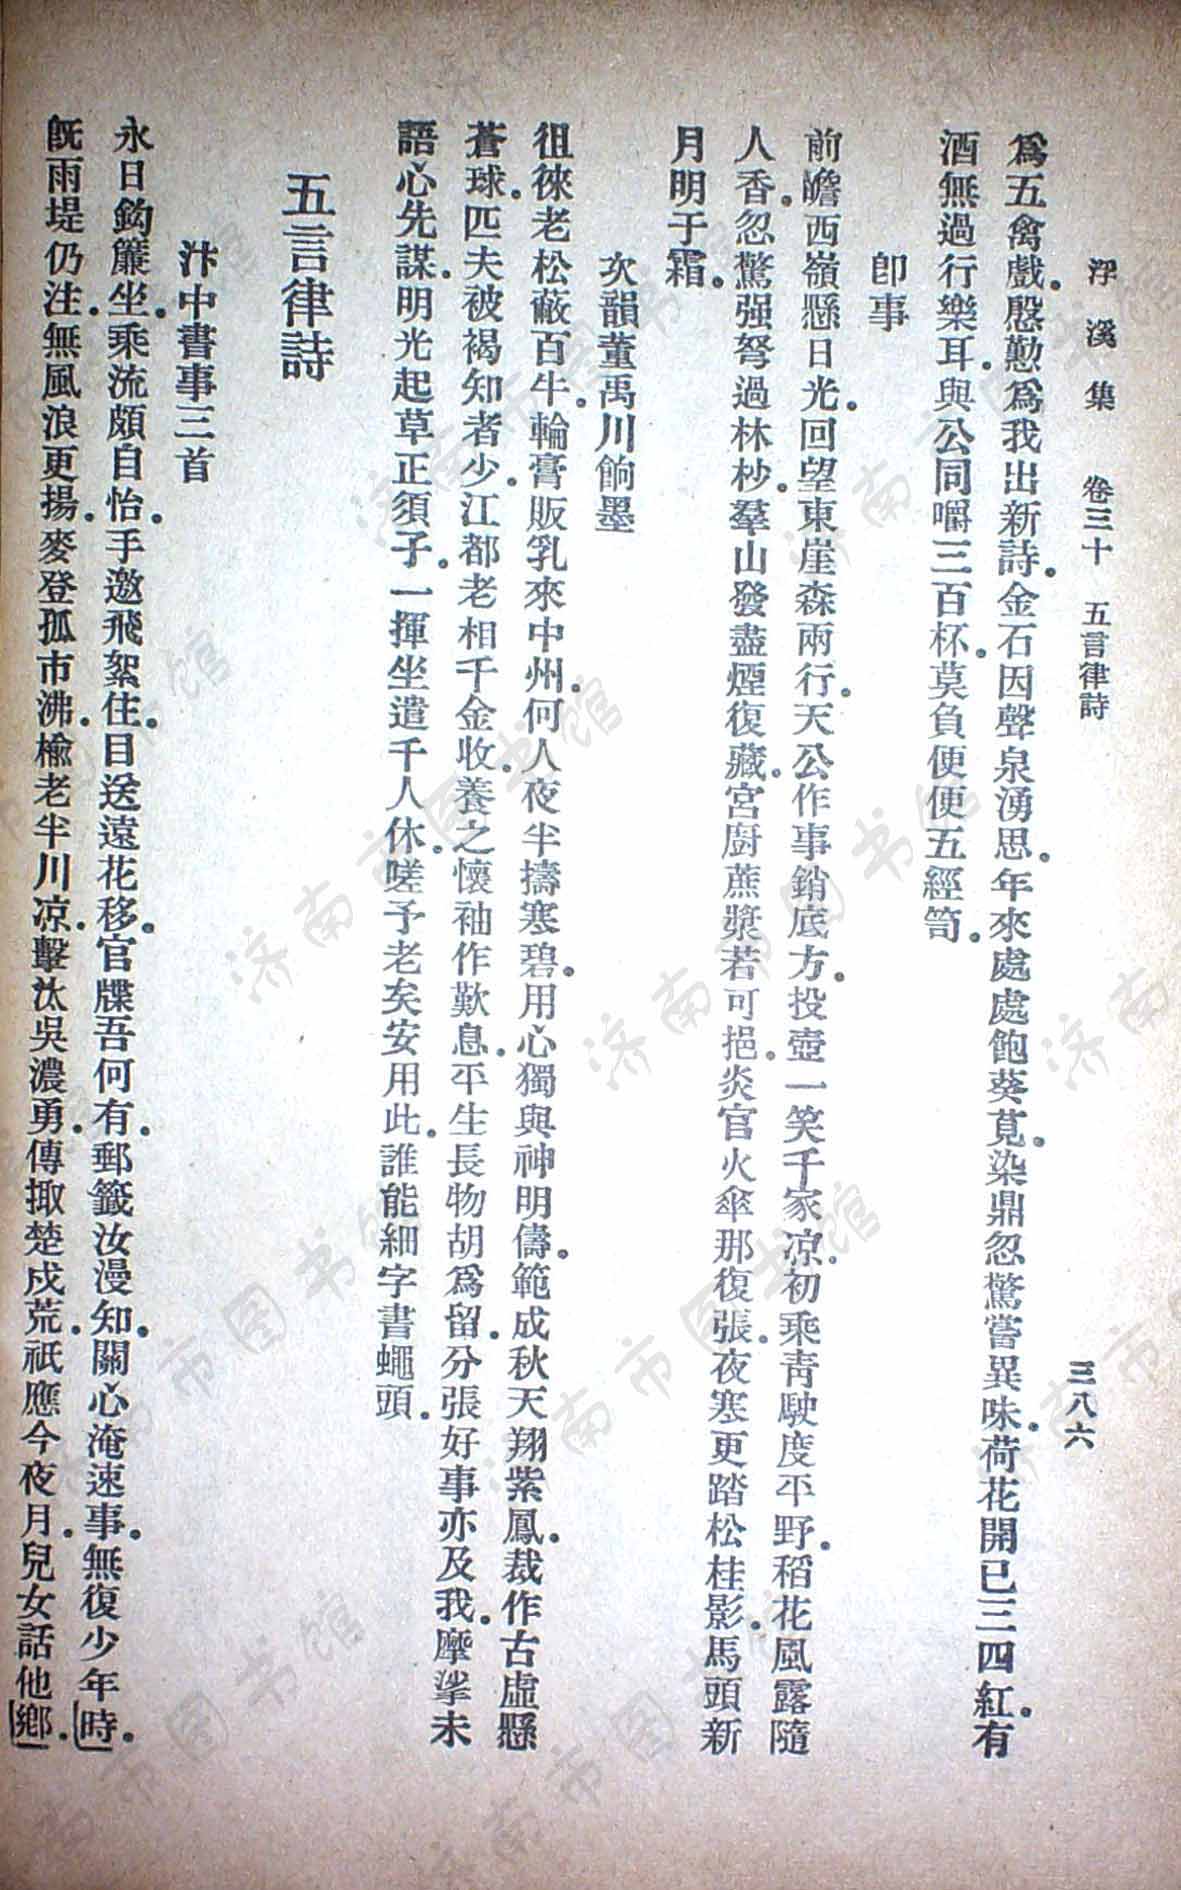 浮溪集 卷三十 五言律詩 三八六
爲五禽戲。慇懃爲我出新詩。金石因聲泉湧思。年來處處飽葵莧。染鼎忽驚嘗異味。荷花開已三四紅。有
酒無過行樂耳。與公同嚼三百杯。莫負便便五經笥。
卽事
前瞻西嶺懸日光。回望東崖森兩行。天公作事銷底方。投壺一笑千家凉。初乘靑駛度平野。稻花風露隨
人香。忽驚强弩過林杪。羣山發盡煙復藏。宮廚蔗漿若可挹。炎官火傘那復張。夜寒更踏松桂影。馬頭新
月明于霜。
次韻董禹川餉墨
徂徠老松蔽百牛。輪膏販乳來中州。何人夜半擣寒碧。用心獨與神明儔。範成秋天翔紫鳳。裁作古虛懸
蒼球。匹夫被褐知者少。江都老相千金收。養之懷袖作歎息。平生長物胡爲留。分張好事亦及我。摩挲未
語心先謀。明光起草正須子。一揮坐遣千人休。嗟予老矣安用此。誰能細字書蠅頭。
五言律詩
汴中書事三首
永日鈎簾坐。乘流頗自怡。手邀飛絮住。目送遠花移。官牒吾何有。郵籤汝漫知。關心淹速事。無復少年[時]。
旣雨堤仍注。無風浪更揚。麥登孤市沸。楡老半川凉。擊汰吳濃勇。傳掫楚戍荒。祇應今夜月。兒女話他[鄉]。
济南市图书馆